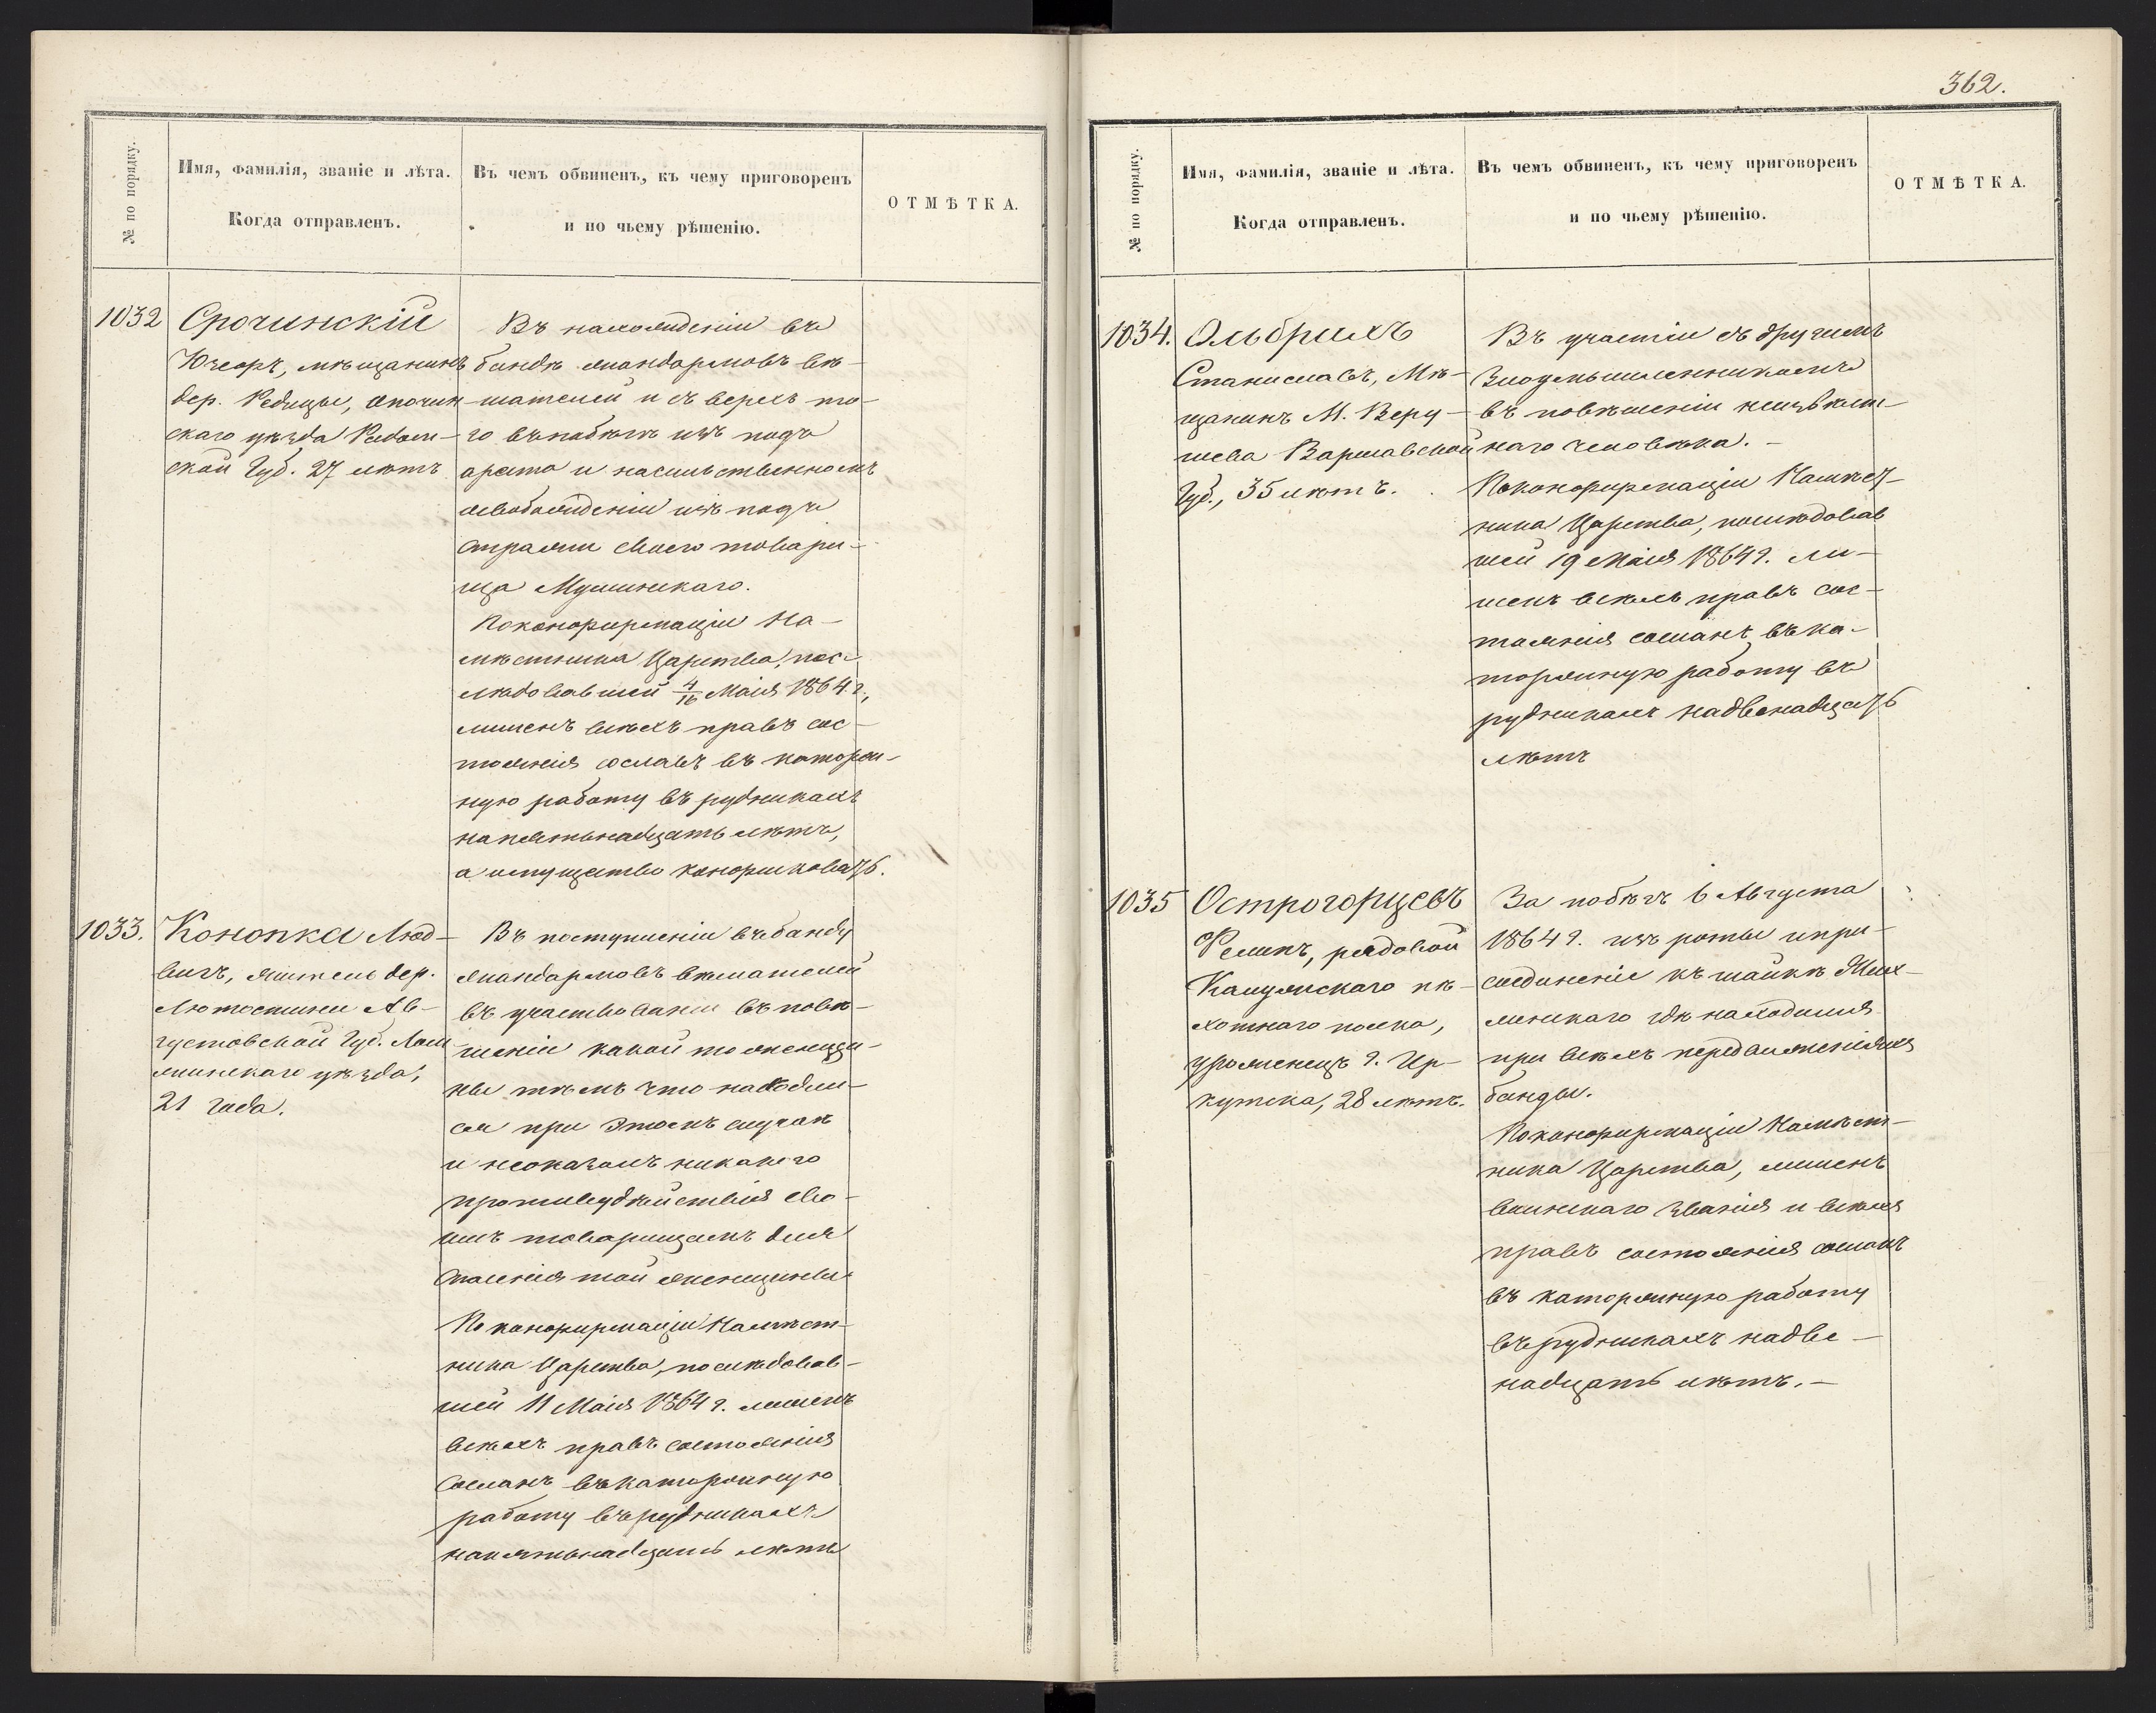 № по порядку.
Имя, фамилія, званіе и лѣта.
Когда отправленъ.
Въ чемъ обвиненъ, къ чему приговоренъ
и по чьему рѣшенію.
ОТМѢТКА.
1032
Срочинскій
Юзефъ, мѣщанинъ
дер. Редзицы, Опочин
скаго уѣзда Радом-
ской Губ. 27 лѣтъ
Въ нахожденіи въ
бандѣ жандармовъ вѣ-
шателей и съ верхъ то-
го въ побѣгѣ изъ подъ
ареста и насильственномъ
освобожденіи изъ подъ
стражи своего товари-
ща
По конфирмаціи На-
мѣстника Царства, пос-
лѣдовавшей 4/16 Маія 1864 г.,
лишенъ всѣхъ правъ сос-
тоянія сосланъ въ каторж-
ную работу въ рудникахъ
на пятьнадцать лѣтъ,
а имущество конфисковать.
1033.
Конопка Люд-
вигъ, житель дер.
Ав-
густовской Губ. Лом
жинскаго уѣзда,
21 года.
Въ поступленіи въ банду
жандармовъ вѣшателей
въ участвованіи въ повѣ-
шеніи какой то женщи-
ны тѣмъ что находил-
ся при этомъ случаѣ
и неоказалъ никакого
противудѣйствія сво-
имъ товарищамъ для
спасенія той женщины
По конфирмаціи Намѣст-
ника Царства, послѣдовав-
шей 11 Маія 1864 г. лишенъ
всѣхъ правъ состоянія
сосланъ въ каторжную
работу въ рудникахъ
на пятьнадцать лѣтъ
362.
№ по порядку.
Имя, фамилія, званіе и лѣта.
Когда отправленъ.
Въ чемъ обвиненъ, къ чему приговоренъ
и по чьему рѣшенію.
ОТМѢТКА.
1034.
Ольбрихъ
Станиславъ, Мѣ-
щанинъ М. Веру-
шева Варшавской
Губ., 35 лѣтъ.
Въ участіи съ другимъ
Злоумышленникомъ
въ повѣшеніи неизвѣст-
наго человѣка.-
По конфирмаціи Намѣст-
ника Царства, послѣдовав
шей 19 Маія 1864 г. ли-
шенъ всѣхъ правъ сос-
тоянія сосланъ въ ка-
торжную работу въ
рудникахъ на двенадцать
лѣтъ
1035
Острогорцевъ
Филипъ, рядовой
Калужскаго пѣ-
хотнаго полка,
уроженецъ г. Ир-
кутска, 28 лѣтъ.
За побѣгъ 6 Августа
1864 г. изъ роты и при-
соединеніе къ шайкѣ Жих-
линскаго гдѣ находился
при всѣхъ передвиженіяхъ
банды.
По конфирмаціи Намѣст-
ника Царства, лишенъ
воинскаго званія и всѣхъ
правъ состоянія сосланъ
въ каторжную работу
въ рудникахъ на две-
надцать лѣтъ.-